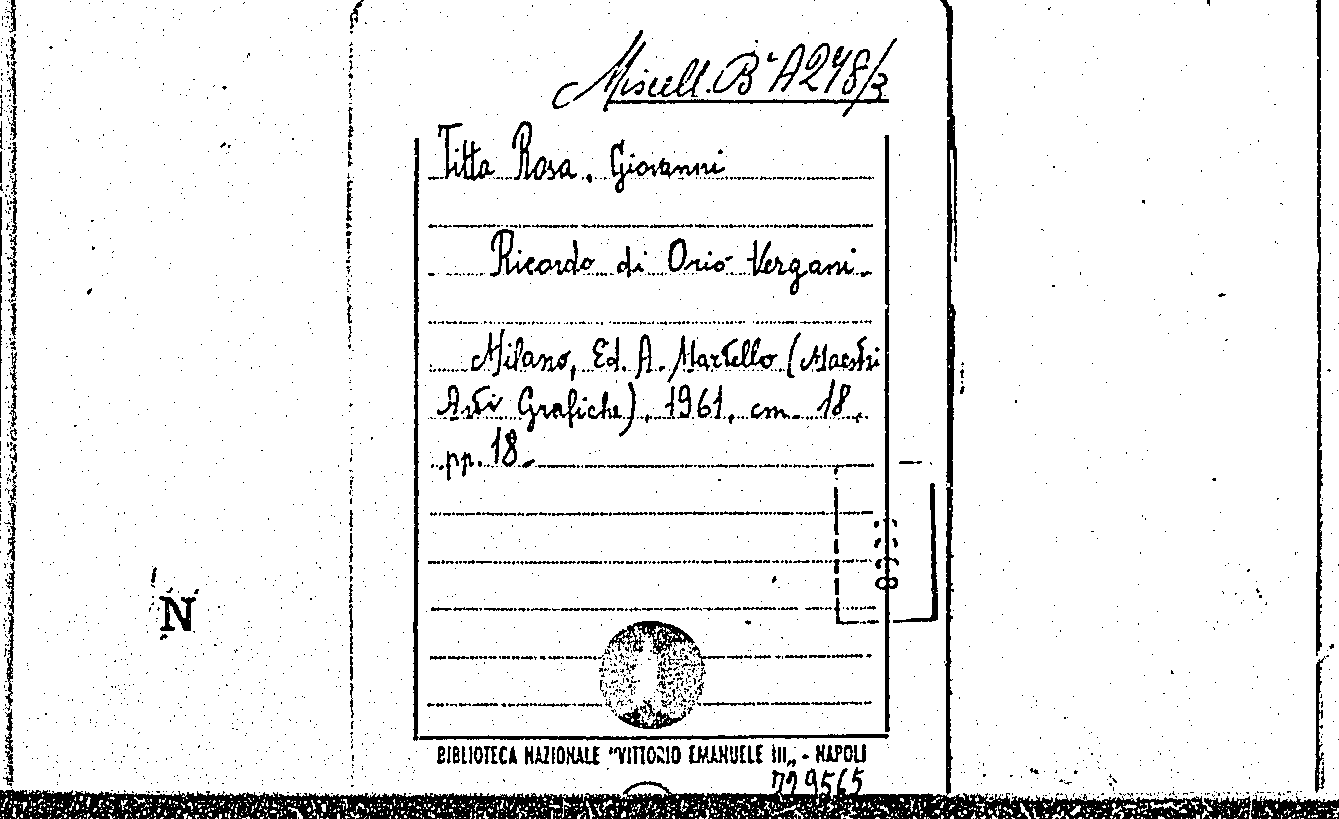 Miscell. Bª A248/3
Titta Rosa, Giovanni
Ricordo di Orio Vergani.
Milano, Ed. A. Martello (Maestri
Arti Grafiche), 1961, cm. 18,
pp. 18.
N
BIBLIOTECA NAZIONALE "VITTORIO EMANUELE III„ - NAPOLI
729565